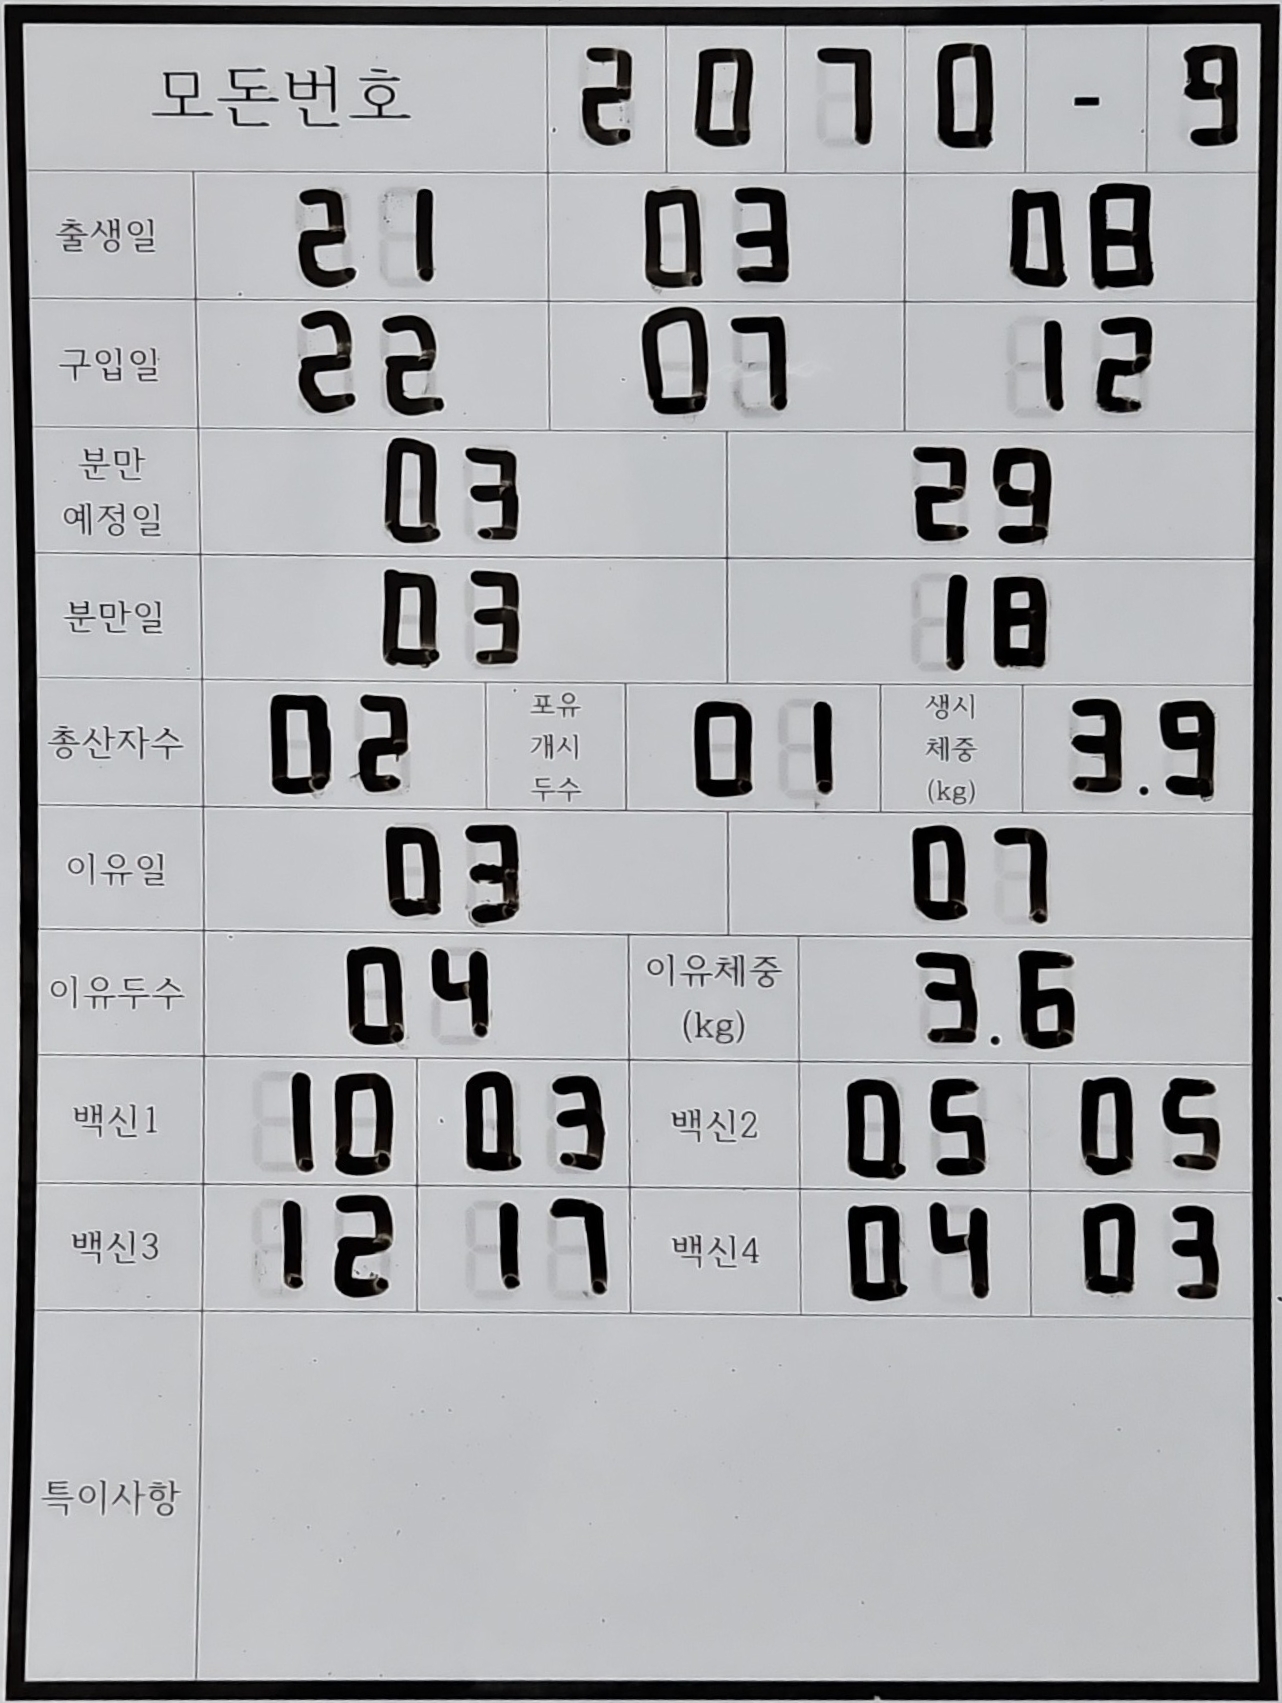 모돈번호 2 0 7 0 - 9
출생일 21 03 08
구입일 22 07 12
분만
예정일 03 29
분만일 03 18
총산자수 02 포유
개시
두수 01 생시
체중
(kg) 3.9
이유일 03 07
이유두수 04 이유체중
(kg) 3.6
백신1 10 03 백신2 05 05
백신3 12 17 백신4 04 03
특이사항